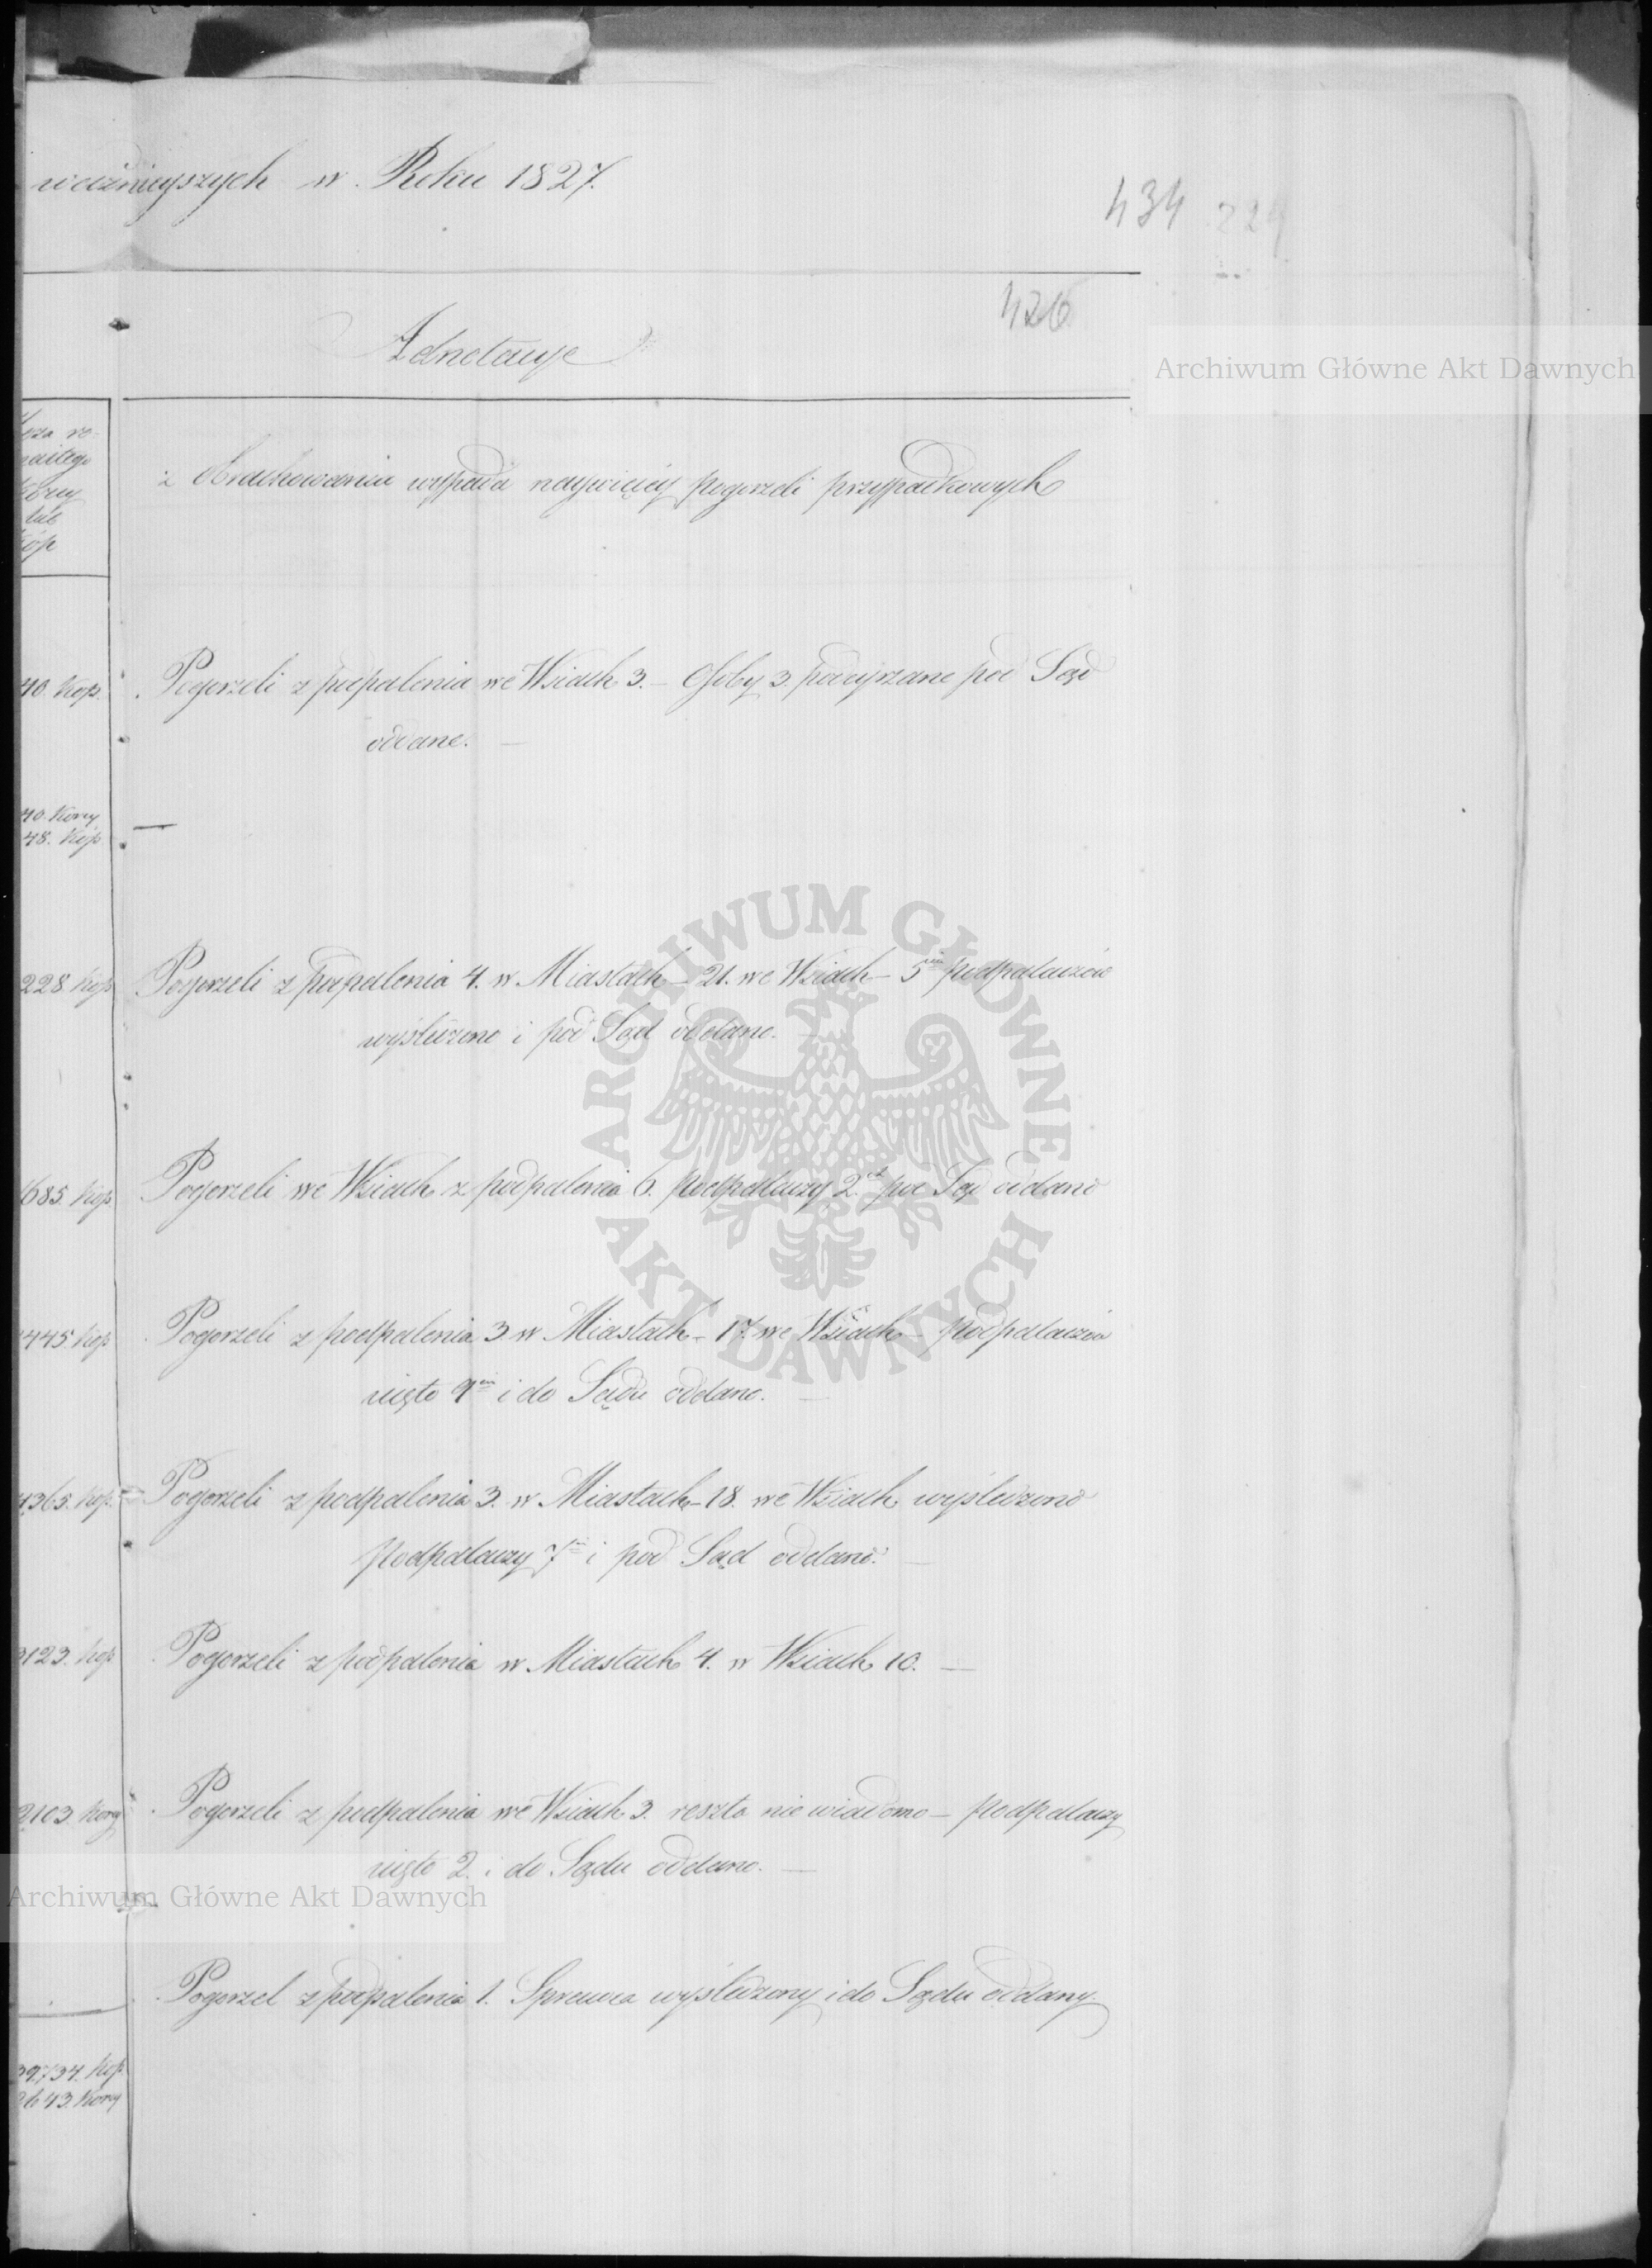 ważnieyszych w Roku 1827.
434 224
426
Adnotacye
Zboża ro-
maitego
Korcy
lub
Kóp
z Obrachowania wypada naywięcéy pogorzeli przypadkowych
40. Kop.
Pogorzeli z podpalenia we Wsiach 3. – Osoby 3. podeyrzane pod Sąd
oddane. —
40. Korcy
48. Kóp
—
228. Kóp
Pogorzeli z podpalenia 4. w Miastach – 21. we Wsiach – 5ciu podpalaczów
wyśledzono i pod Sąd oddano. —
685. Kóp
Pogorzeli we Wsiach z podpalenia 6. podpalaczy 2ch pod Sąd oddano
445. Kóp
Pogorzeli z podpalenia 3 w Miastach – 17. we Wsiach – podpalaczów
ujęto 9ciu i do Sądu oddano. —
4,365. Kop.
Pogorzeli z podpalenia 3. w Miastach – 18. we Wsiach wyśledzono
podpalaczy 7iu i pod Sąd oddano. —
3123. Kop
Pogorzeli z podpalenia w Miastach 4. w Wsiach 10. —
2,103 Korcy
Pogorzeli z podpalenia we Wsiach 3. reszta niewiadomo – podpalaczy
ujęto 2. i do Sądu oddano. —
Pogorzel z podpalenia 1. Sprawca wyśledzony i do Sądu oddany.
39,734. Kop.
2643. Korcy
Archiwum Główne Akt Dawnych
ARCHIWUM GŁÓWNE AKT DAWNYCH
Archiwum Główne Akt Dawnych